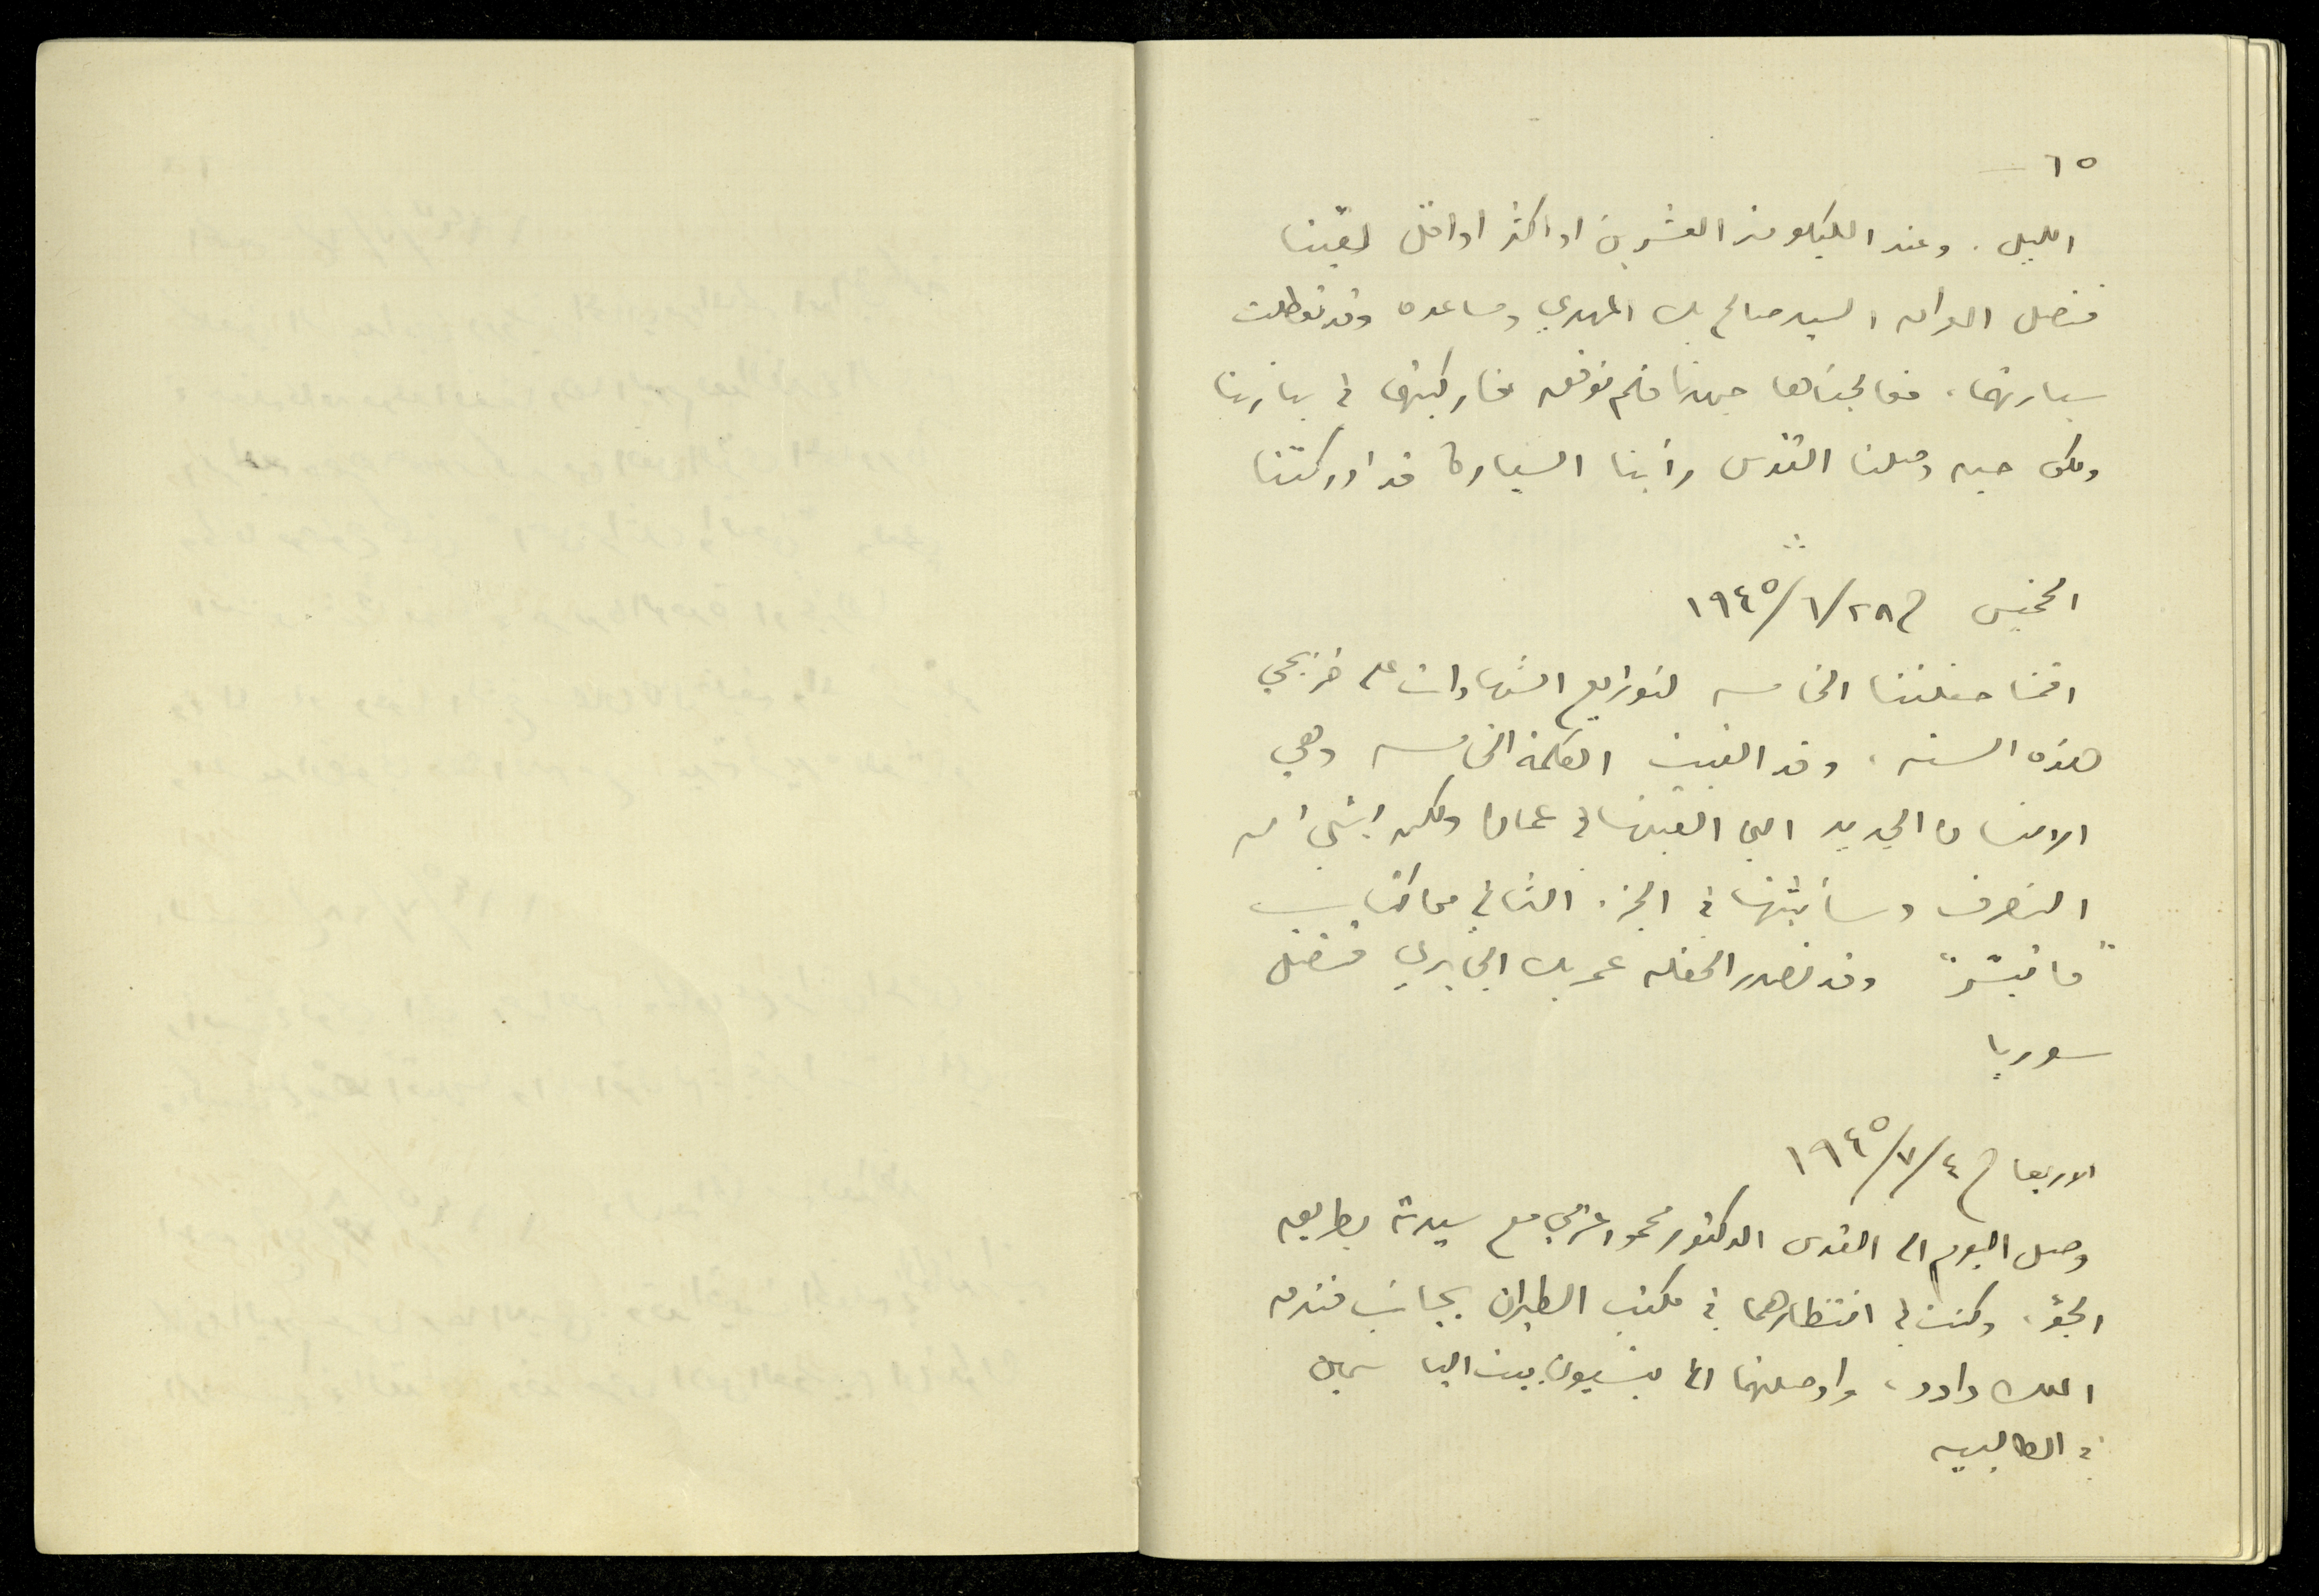 ٦٥
الليل . وعند الكيلومتر العشرين او اكثر او اقل لقينا
قنصل العراق السيد صالح بك المهدي ومساعده وقد تعطلت
سيارتهما، فعالجناها جهدنا فلم نوفق فاركبتهما في سيارتنا
ولكن حين وصلنا القدس رأينا السيارة قد ادركتنا
الخميس في ٢٨/٦/١٩٤٥
اقمنا حفلتنا الخامسة لتوزيع الشهادات على خريجي
هذه السنة، وقد القيت الكلمة الخامسة وهي
الانسان الجديد التي القيتها في عمان ولكن بشيء من
التصرف وسأثبتها في الجزء الثاني من كتاب
"ما تيسّر" وقد تصدر الحفلة عمر بك الجابري قنصل
سوريا
الاربعا في ٤/٧/١٩٤٥
وصل اليوم الى القدس الدكتور محمود عزمي مع سيدته بطريق
الجوّ، وكنت في انتظارهما في مكتب الطيران بجانب فندق
الملك داود، واوصلتهما الى بنسيون بيت الياسمين
في الطالبيه